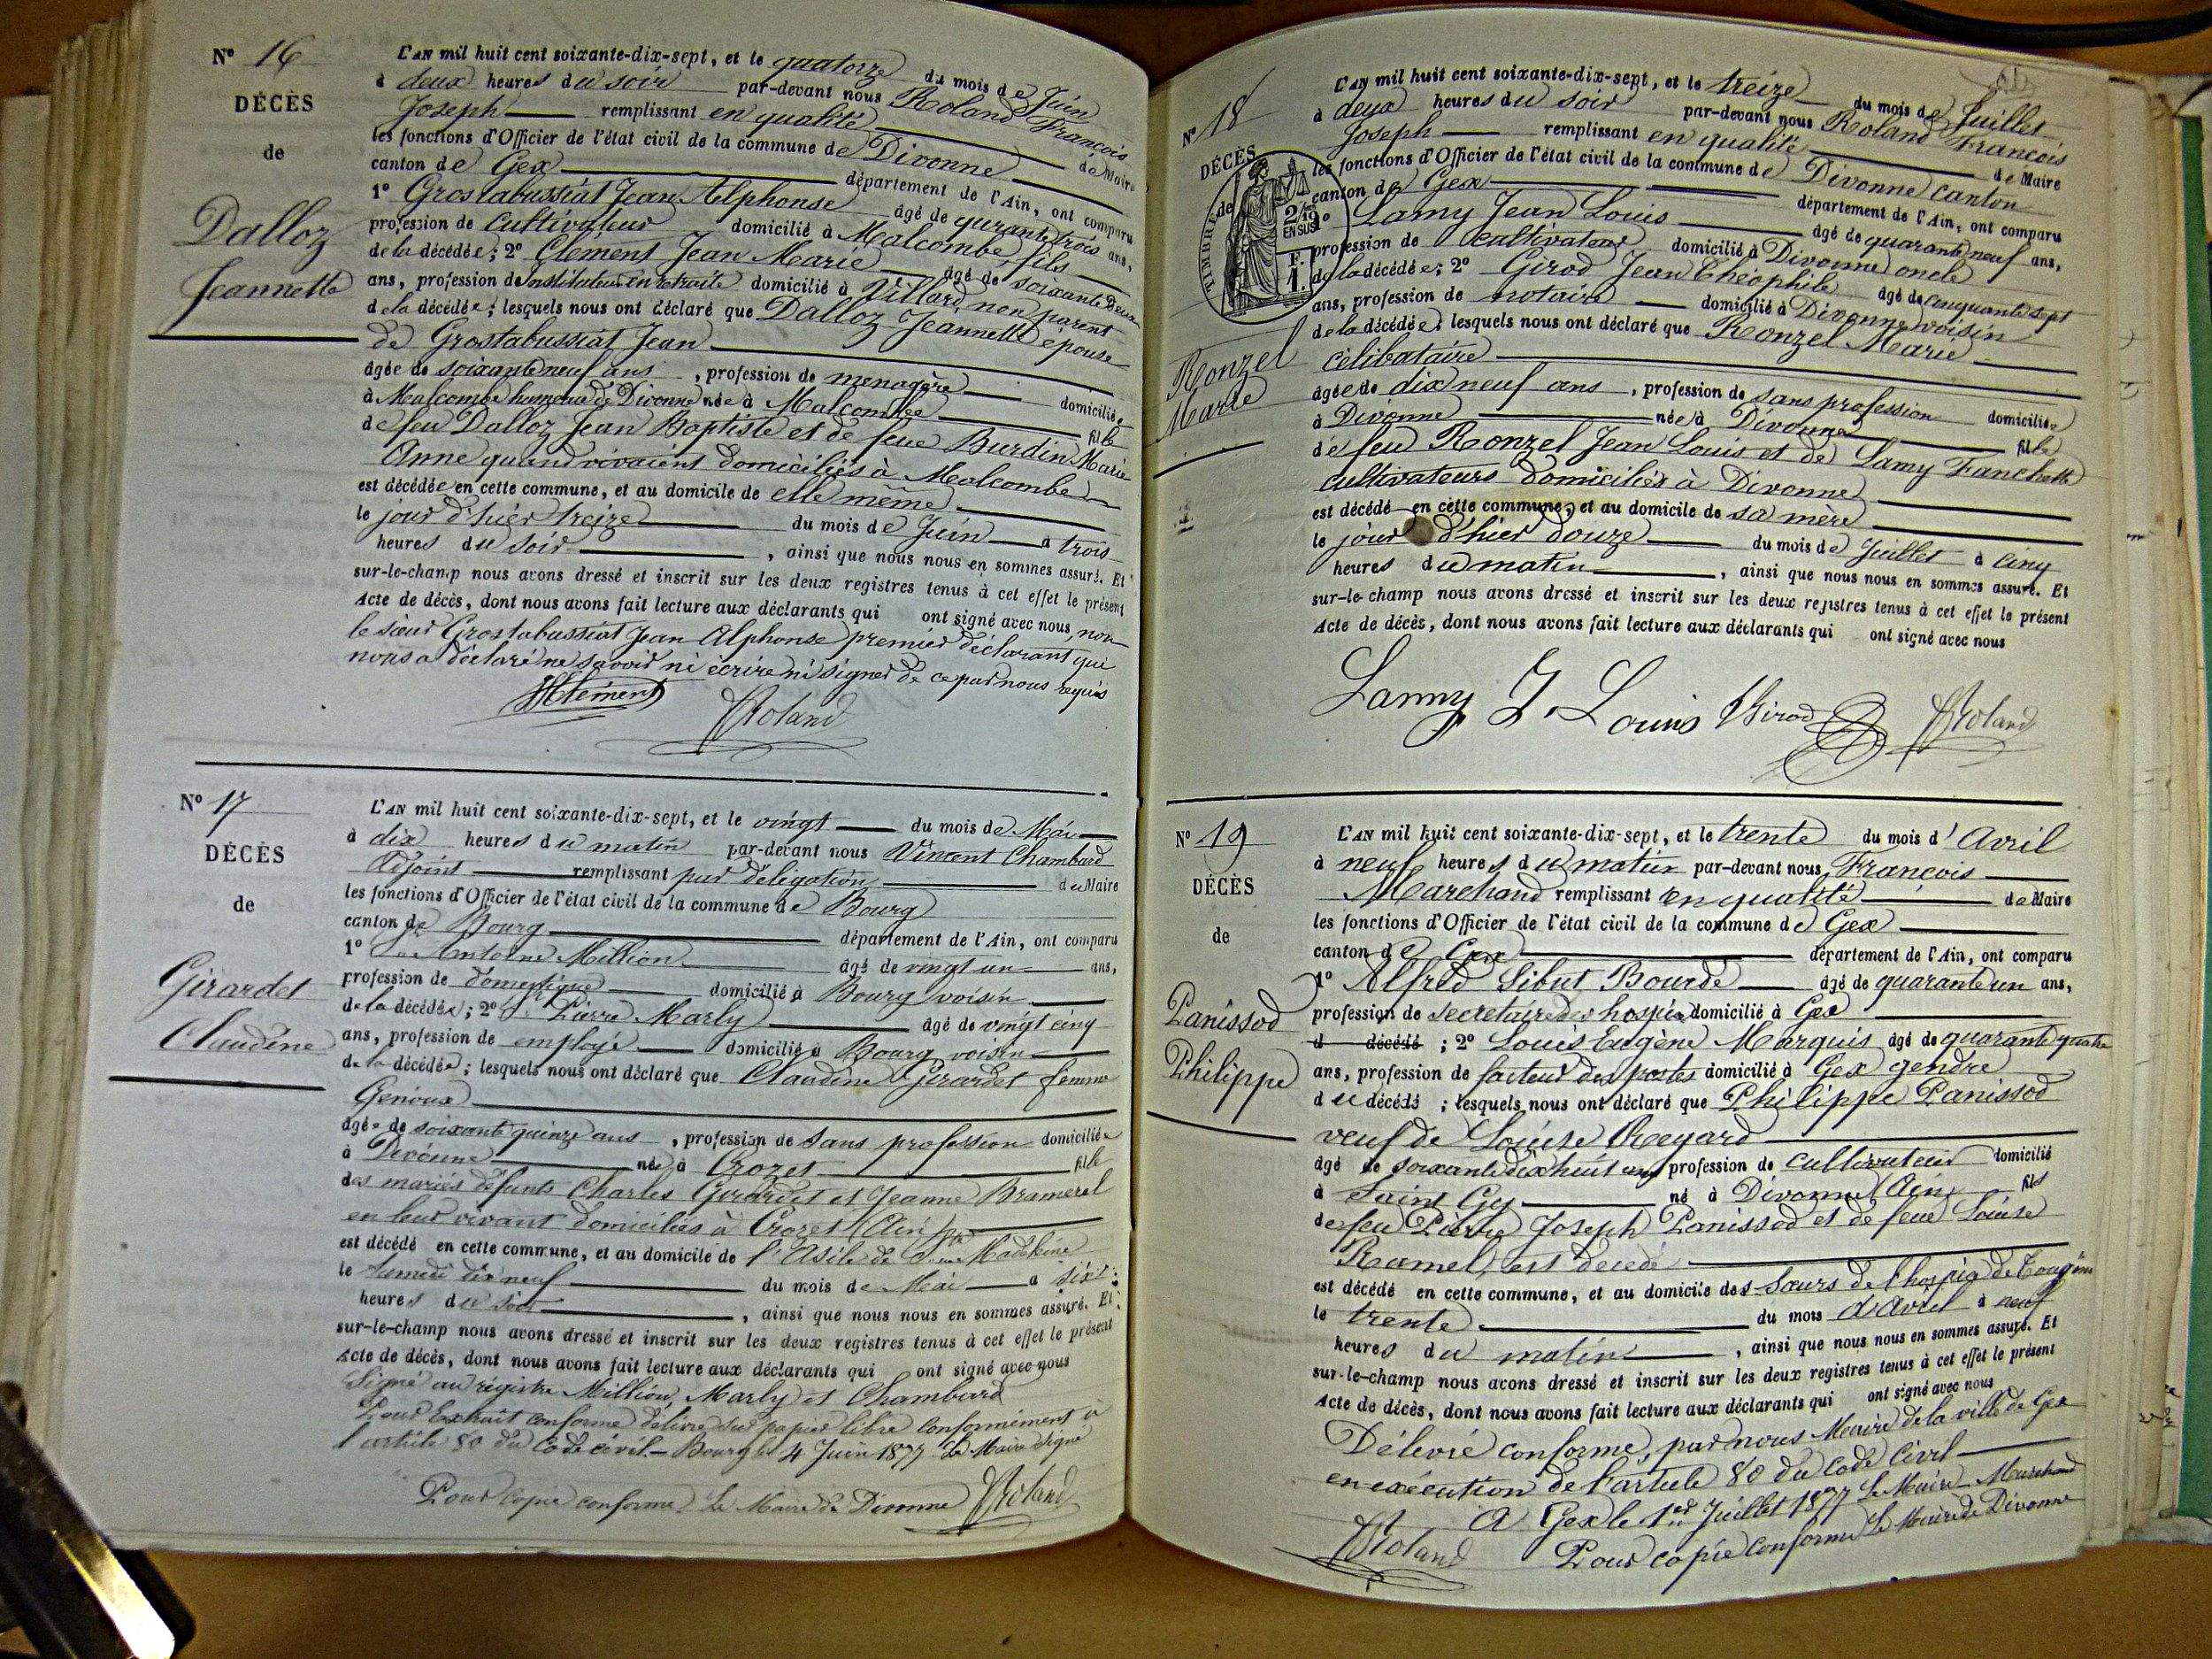 N° 16
DÉCÈS
de
Dalloz
Jeannette
L'AN mil huit cent soixante-dix-sept, et le quatorze du mois de Juin
à deux heures du soir par-devant nous Roland François
Joseph remplissant en qualité de Maire
les fonctions d'Officier de l'état civil de la commune de Divonne
canton de Gex département de l'Ain, ont comparu
1° Grostabussiat Jean Alphonse âgé de quarante trois ans,
profession de cultivateur domicilié à Malcombe fils
de la décédée; 2° Clément Jean Marie âgé de soixante deux
ans, profession de Instituteur en retraite domicilié à Villard, non parent
de la décédée; lesquels nous ont déclaré que Dalloz Jeannette épouse
de Grostabussiat Jean
âgée de soixante neuf ans, profession de menagère domiciliée
à Malcombe hameau de Divonne née à Malcombe fille
de feu Dalloz Jean Baptiste et de feue Burdin Marie
Anne quand vivaient domiciliés à Malcombe
est décédée en cette commune, et au domicile de elle même
le jour d'hier treize du mois de Juin à trois
heures du soir, ainsi que nous nous en sommes assuré. Et
sur-le-champ nous avons dressé et inscrit sur les deux registres tenus à cet effet le présent
Acte de décès, dont nous avons fait lecture aux déclarants qui ont signé avec nous, non
le sieur Grostabussiat Jean Alphonse premier déclarant qui
nous a déclaré ne savoir ni écrire ni signer de ce par nous requis
JClément
Roland
N° 17
DÉCÈS
de
Girardet
Claudine
L'AN mil huit cent soixante-dix-sept, et le vingt du mois de Mai
à dix heures du matin par-devant nous Vincent Chambard
Adjoint remplissant par délégation du Maire
les fonctions d'Officier de l'état civil de la commune de Bourg
canton de Bourg département de l'Ain, ont comparu
1° Antoine Million âgé de vingt un ans,
profession de domestique domicilié à Bourg voisin
de la décédée; 2° Pierre Marly âgé de vingt cinq
ans, profession de employé domicilié à Bourg voisin
de la décédée; lesquels nous ont déclaré que Claudine Girardet femme
Genoux
âgée de soixante quinze ans, profession de sans profession domiciliée
à Divonne née à Crozet fille
des mariés défunts Charles Girardet et Jeanne Bramerel
en leur vivant domiciliés à Crozet (Ain)
est décédé en cette commune, et au domicile de l'Asile de Ste Madeleine
le samedi dix neuf du mois de Mai à six
heures du soir, ainsi que nous nous en sommes assuré. Et
sur-le-champ nous avons dressé et inscrit sur les deux registres tenus à cet effet le présent
Acte de décès, dont nous avons fait lecture aux déclarants qui ont signé avec nous
Signé au régistre Million, Marly et Chambard
Pour Extrait conforme délivré sur papier libre conformément à
l'article 80 du Code civil - Bourg le 4 Juin 1877 Le Maire Signé
Pour copie conforme Le Maire de Divonne Roland
N° 18
DÉCÈS
de
TIMBRE
2/10
EN SUS
F.
1.
Ronzel
Marie
L'AN mil huit cent soixante-dix-sept, et le treize du mois de Juillet
à deux heures du soir par-devant nous Roland François
Joseph remplissant en qualité de Maire
les fonctions d'Officier de l'état civil de la commune de Divonne canton
canton de Gex département de l'Ain, ont comparu
1° Lamy Jean Louis âgé de quarante neuf ans,
profession de cultivateur domicilié à Divonne oncle
de la décédée; 2° Girod Jean Théophile âgé de cinquante sept
ans, profession de notaire domicilié à Divonne voisin
de la décédée; lesquels nous ont déclaré que Ronzel Marie
célibataire
âgée de dix neuf ans, profession de sans profession domiciliée
à Divonne née à Divonne fille
de feu Ronzel Jean Louis et de Lamy Fanchette
cultivateurs domiciliés à Divonne
est décédé en cette commune, et au domicile de sa mère
le jour d'hier douze du mois de Juillet à cinq
heures du matin, ainsi que nous nous en sommes assuré. Et
sur-le-champ nous avons dressé et inscrit sur les deux registres tenus à cet effet le présent
Acte de décès, dont nous avons fait lecture aux déclarants qui ont signé avec nous
Lamy J. Louis Girod Roland
N° 19
DÉCÈS
de
Panissod
Philippe
L'AN mil huit cent soixante-dix-sept, et le trente du mois d'Avril
à neuf heures du matin par-devant nous François
Marchand remplissant en qualité de Maire
les fonctions d'Officier de l'état civil de la commune de Gex
canton de Gex département de l'Ain, ont comparu
1° Alfred Sibut Bourde âgé de quarante un ans,
profession de secrétaire des hospices domicilié à Gex
d décédé; 2° Louis Eugène Marquis âgé de quarante quatre
ans, profession de facteur des postes domicilié à Gex gendre
du décédé; lesquels nous ont déclaré que Philippe Panissod
veuf de Louise Regard
âgé de soixante dix huit ans profession de cultivateur domicilié
à Saint Gix né à Divonne (Ain) fils
de feu Pierre Joseph Panissod et de feue Louise
Ramel, est décédé
est décédé en cette commune, et au domicile des Sœurs de l'hospice de Tougin
le trente du mois d'avril à neuf
heures du matin, ainsi que nous nous en sommes assuré. Et
sur-le-champ nous avons dressé et inscrit sur les deux registres tenus à cet effet le présent
Acte de décès, dont nous avons fait lecture aux déclarants qui ont signé avec nous
Délivré conforme, par nous Maire de la ville de Gex
en exécution de l'article 80 du Code Civil
A Gex le 1er Juillet 1877 Le Maire Marchand
Roland Pour copie conforme Le Maire de Divonne